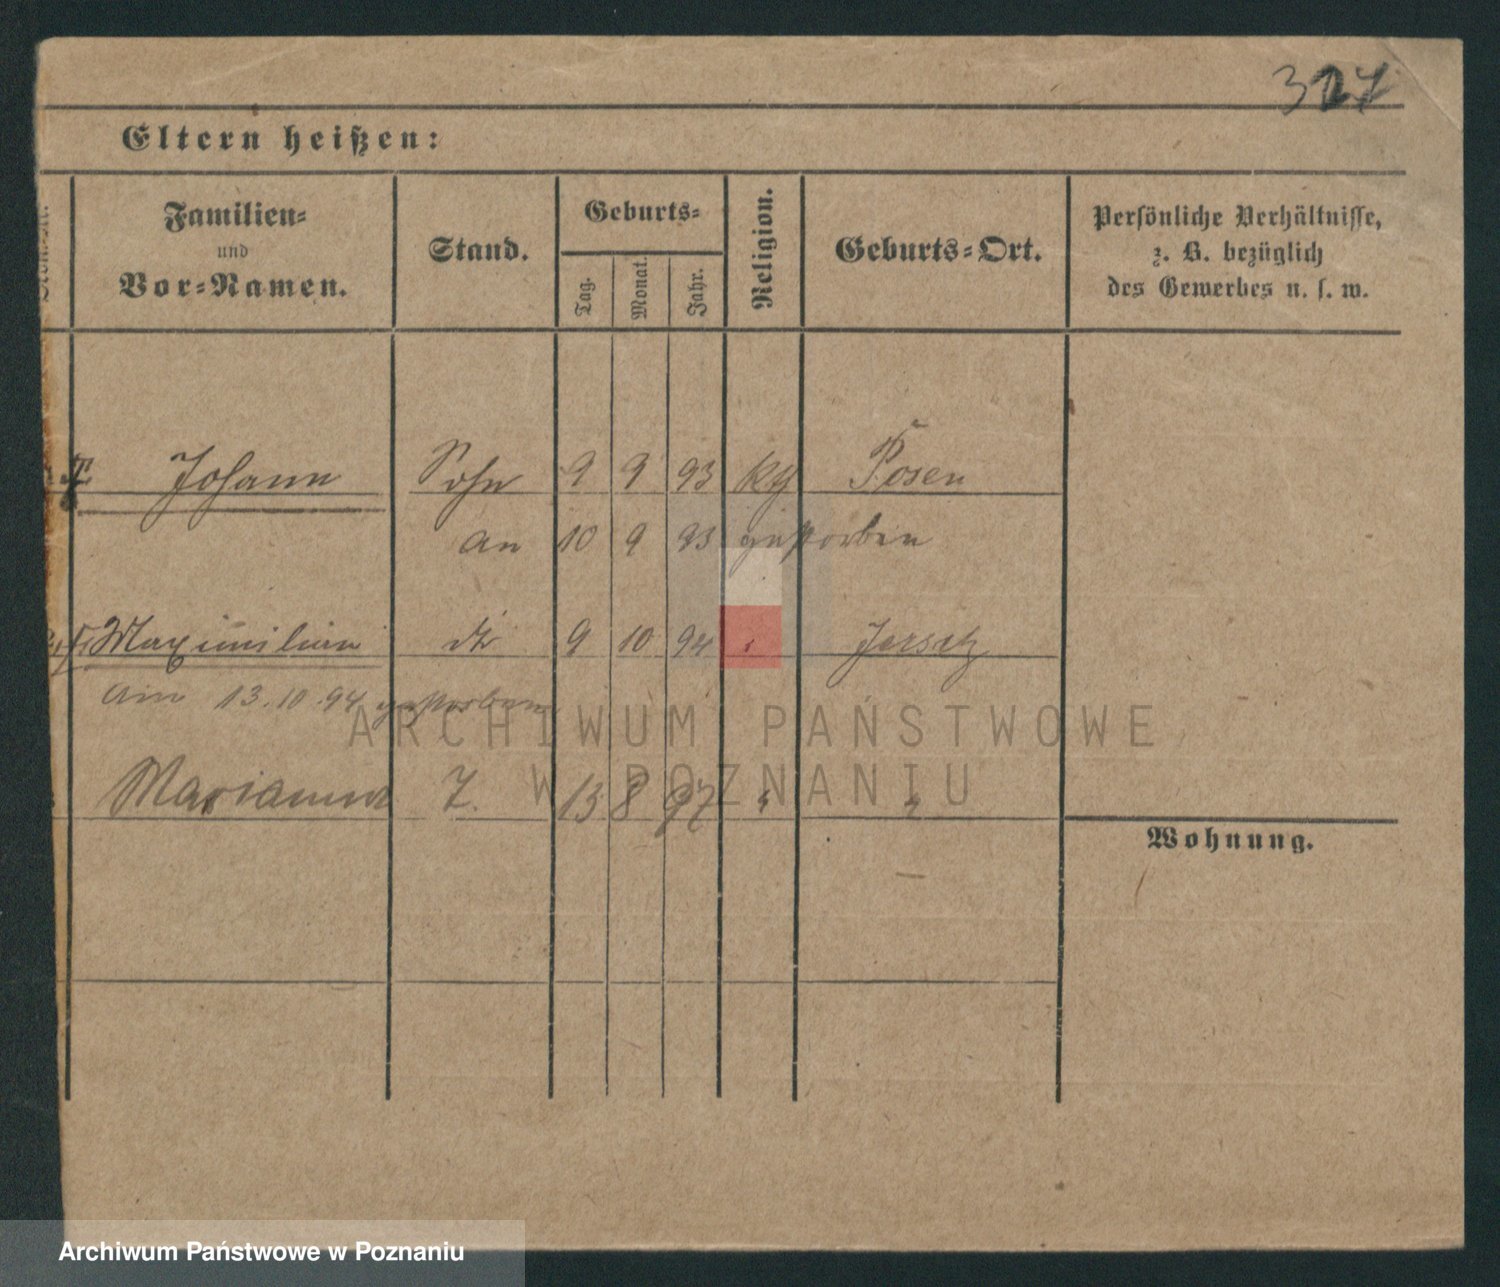 327
Eltern heißen:
Familien-
und
Vor-Namen.
Stand.
Geburts-
Tag.
Monat.
Jahr.
Religion.
Geburts-Ort.
Persönliche Verhältnisse,
z. B. bezüglich
des Gewerbes u. s. w.
Johann Sohn 9 9 93 kth Posen
an 10 9 93 gestorben
Maximilian dto 9 10 94 " Jersitz
Am 13.10.94 gestorben
Marianna T. 13 8 97 " "
Wohnung.
ARCHIWUM PAŃSTWOWE
W POZNANIU
Archiwum Państwowe w Poznaniu